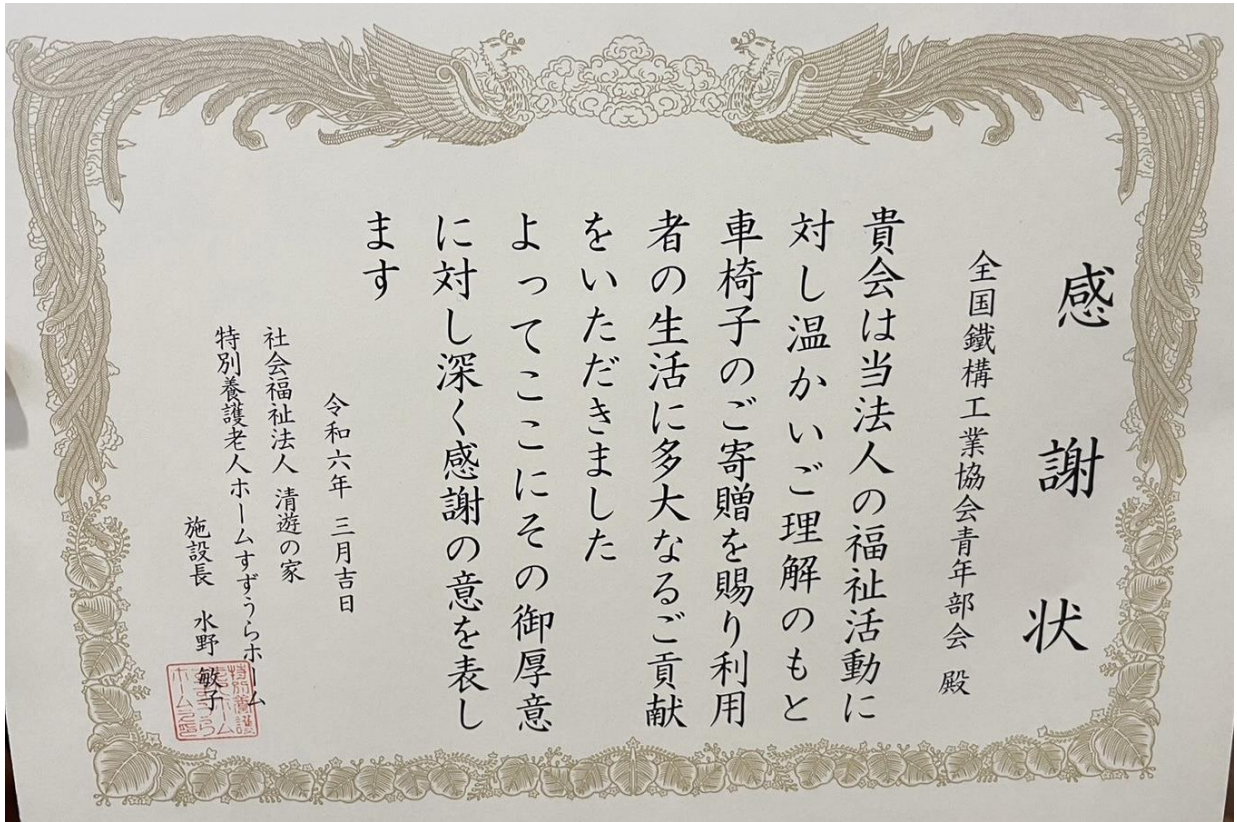 感謝状
全国鐵構工業協会青年部会 殿
貴会は当法人の福祉活動に
対し温かいご理解のもと
車椅子のご寄贈を賜り利用
者の生活に多大なるご貢献
をいただきました
よってここにその御厚意
に対し深く感謝の意を表し
ます
令和六年 三月吉日
社会福祉法人 清遊の家
特別養護老人ホームすずうらホーム
施設長 水野 敏子